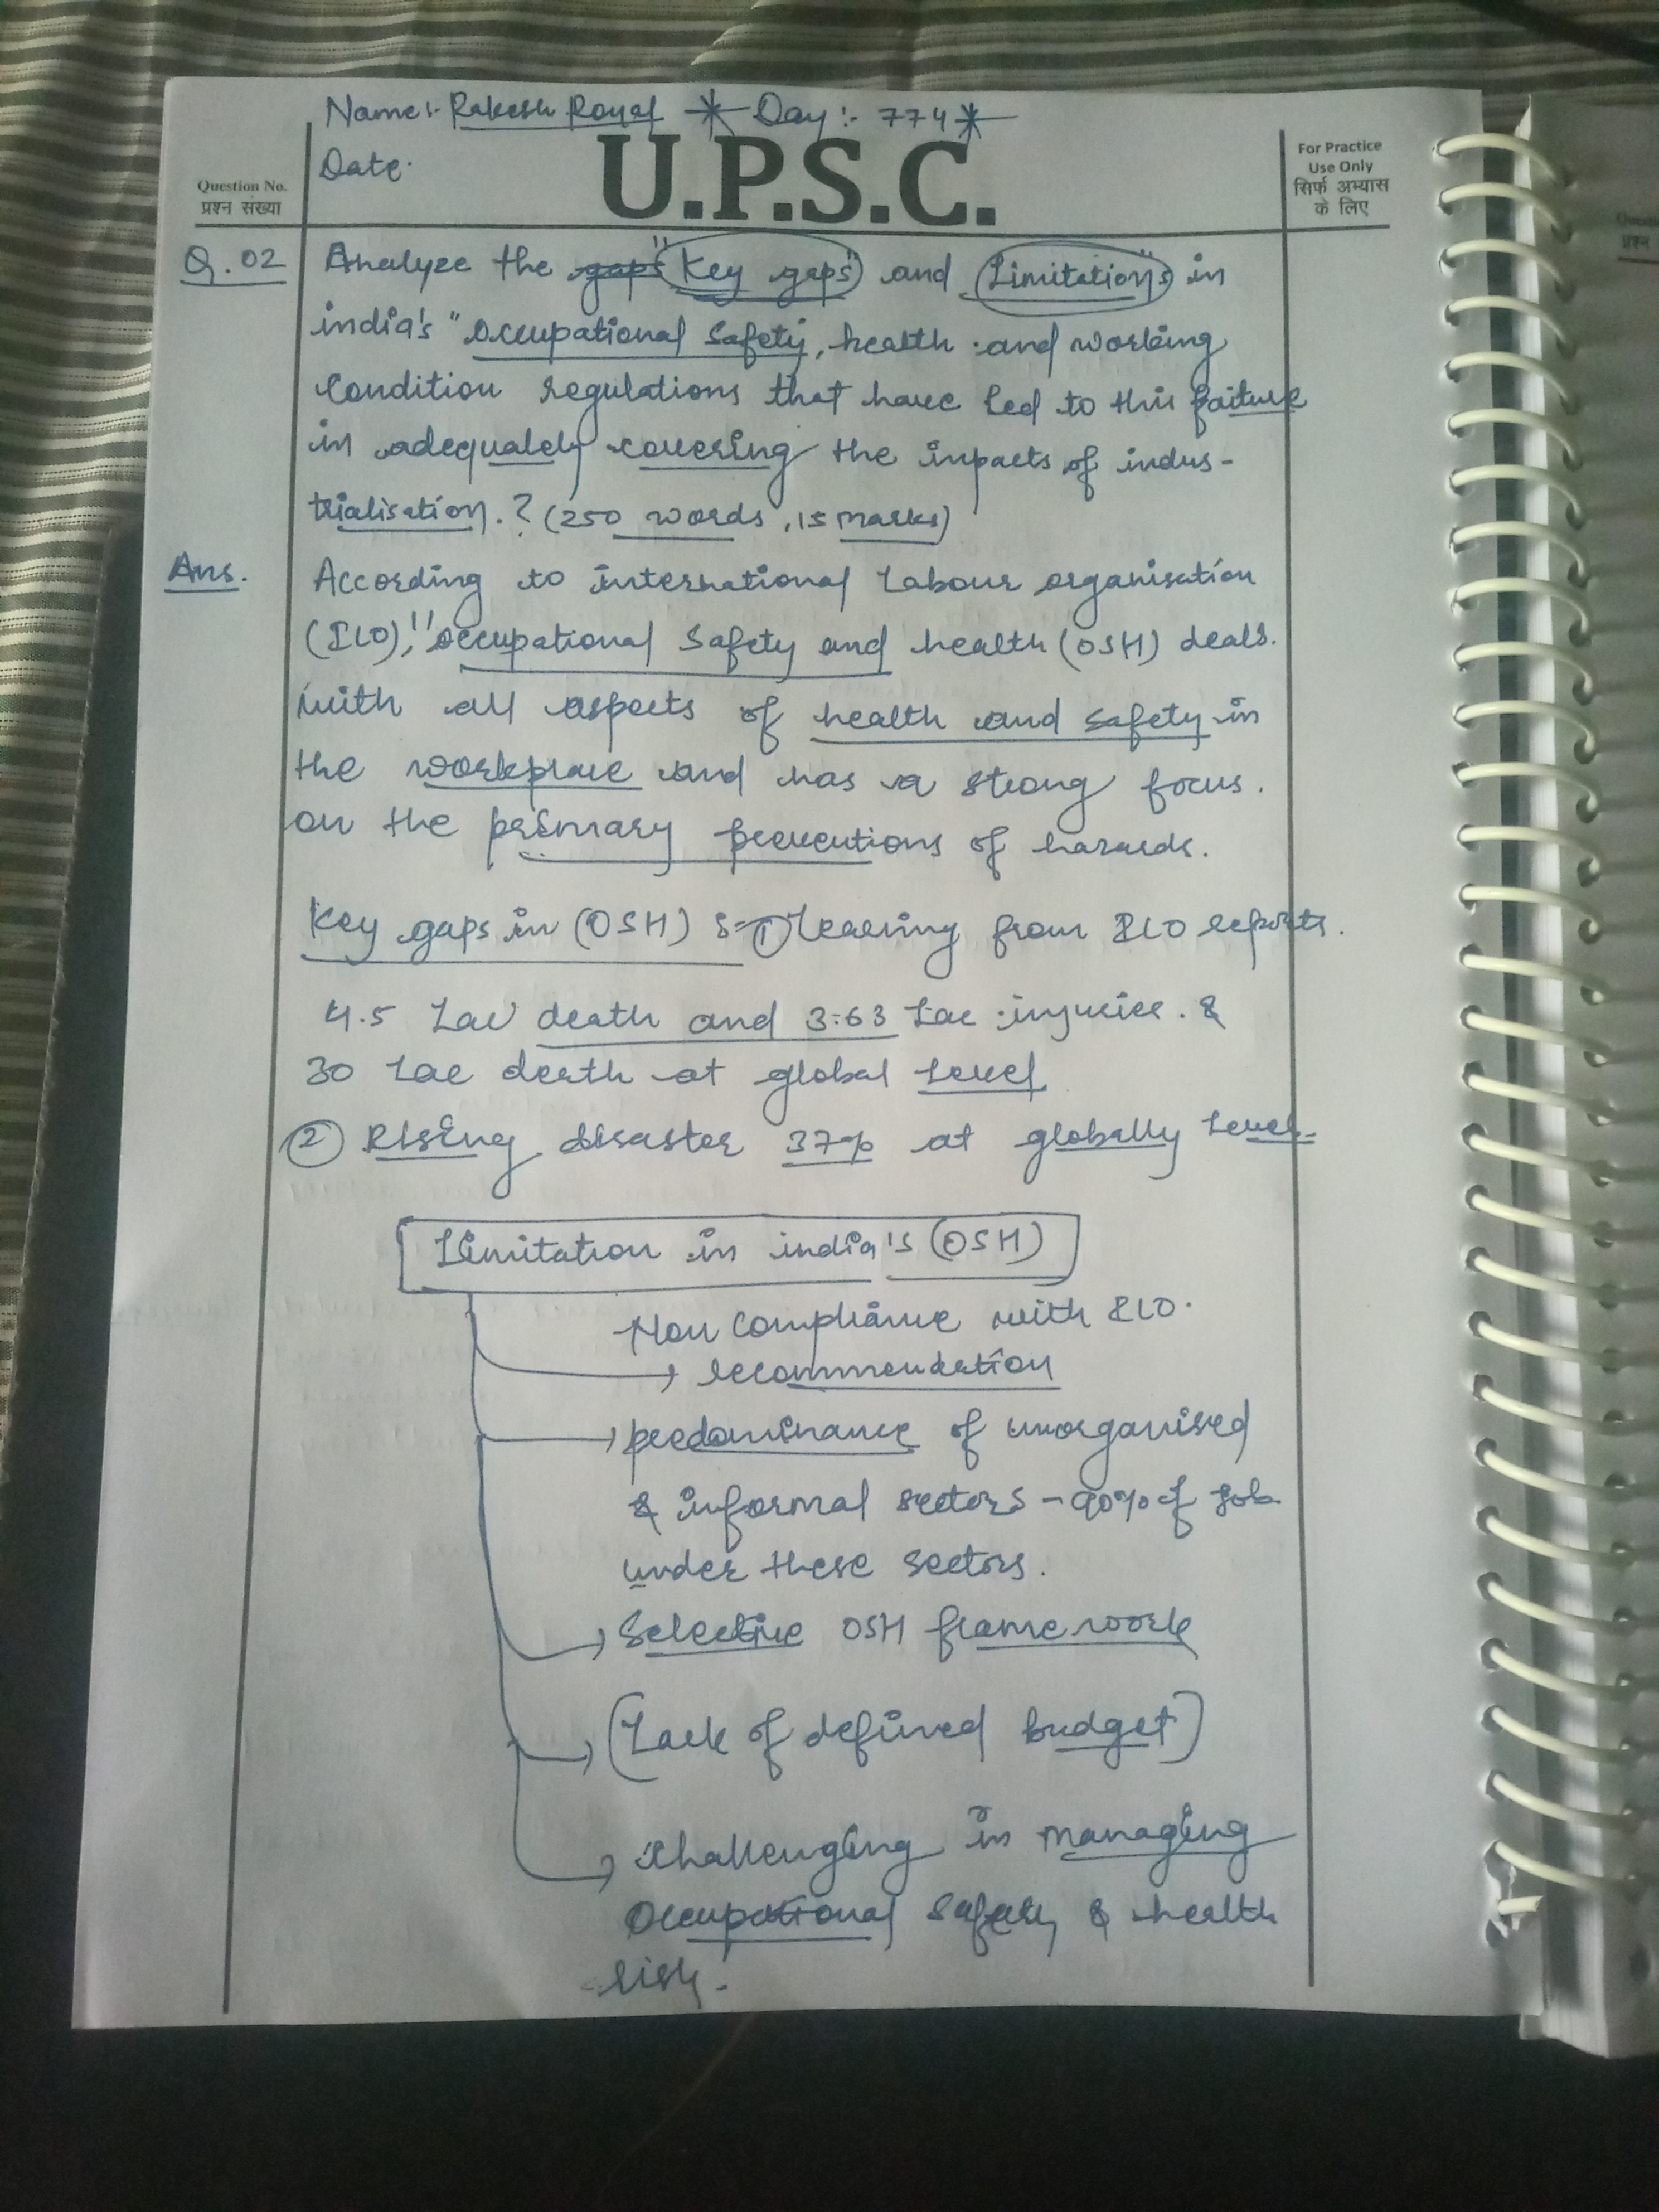 Name:- Rakesh Royal * Day:- 774*
Date.
U.P.S.C.
Question No.
प्रश्न संख्या
For Practice
Use Only
सिर्फ अभ्यास
के लिए
Q.02 Analyze the gaps "Key gaps" and (Limitations) in
india's "occupational safety, health and working
condition regulations that have led to this failure
in adequately covering the impacts of indus-
trialisation.? (250 words, 15 marks)
Ans. According to international Labour organisation
(ILO), "occupational safety and health (OSH) deals.
with all aspects of health and safety in
the workplace and has a strong focus.
on the primary preventions of hazards.
Key gaps in (OSH) :- ① Learning from ILO reports.
4.5 Lac death and 3.63 Lac injuries. &
30 Lac death at global level
② Rising disaster 37% at globally level.
Limitation in india's (OSH)
Non compliance with ILO.
→ recommendation
→ predominance of unorganised
& informal sectors - 90% of job
under these sectors.
→ Selective OSH frame work
→ (Lack of defined budget)
→ challenging in managing
occupational safety & health
risk.